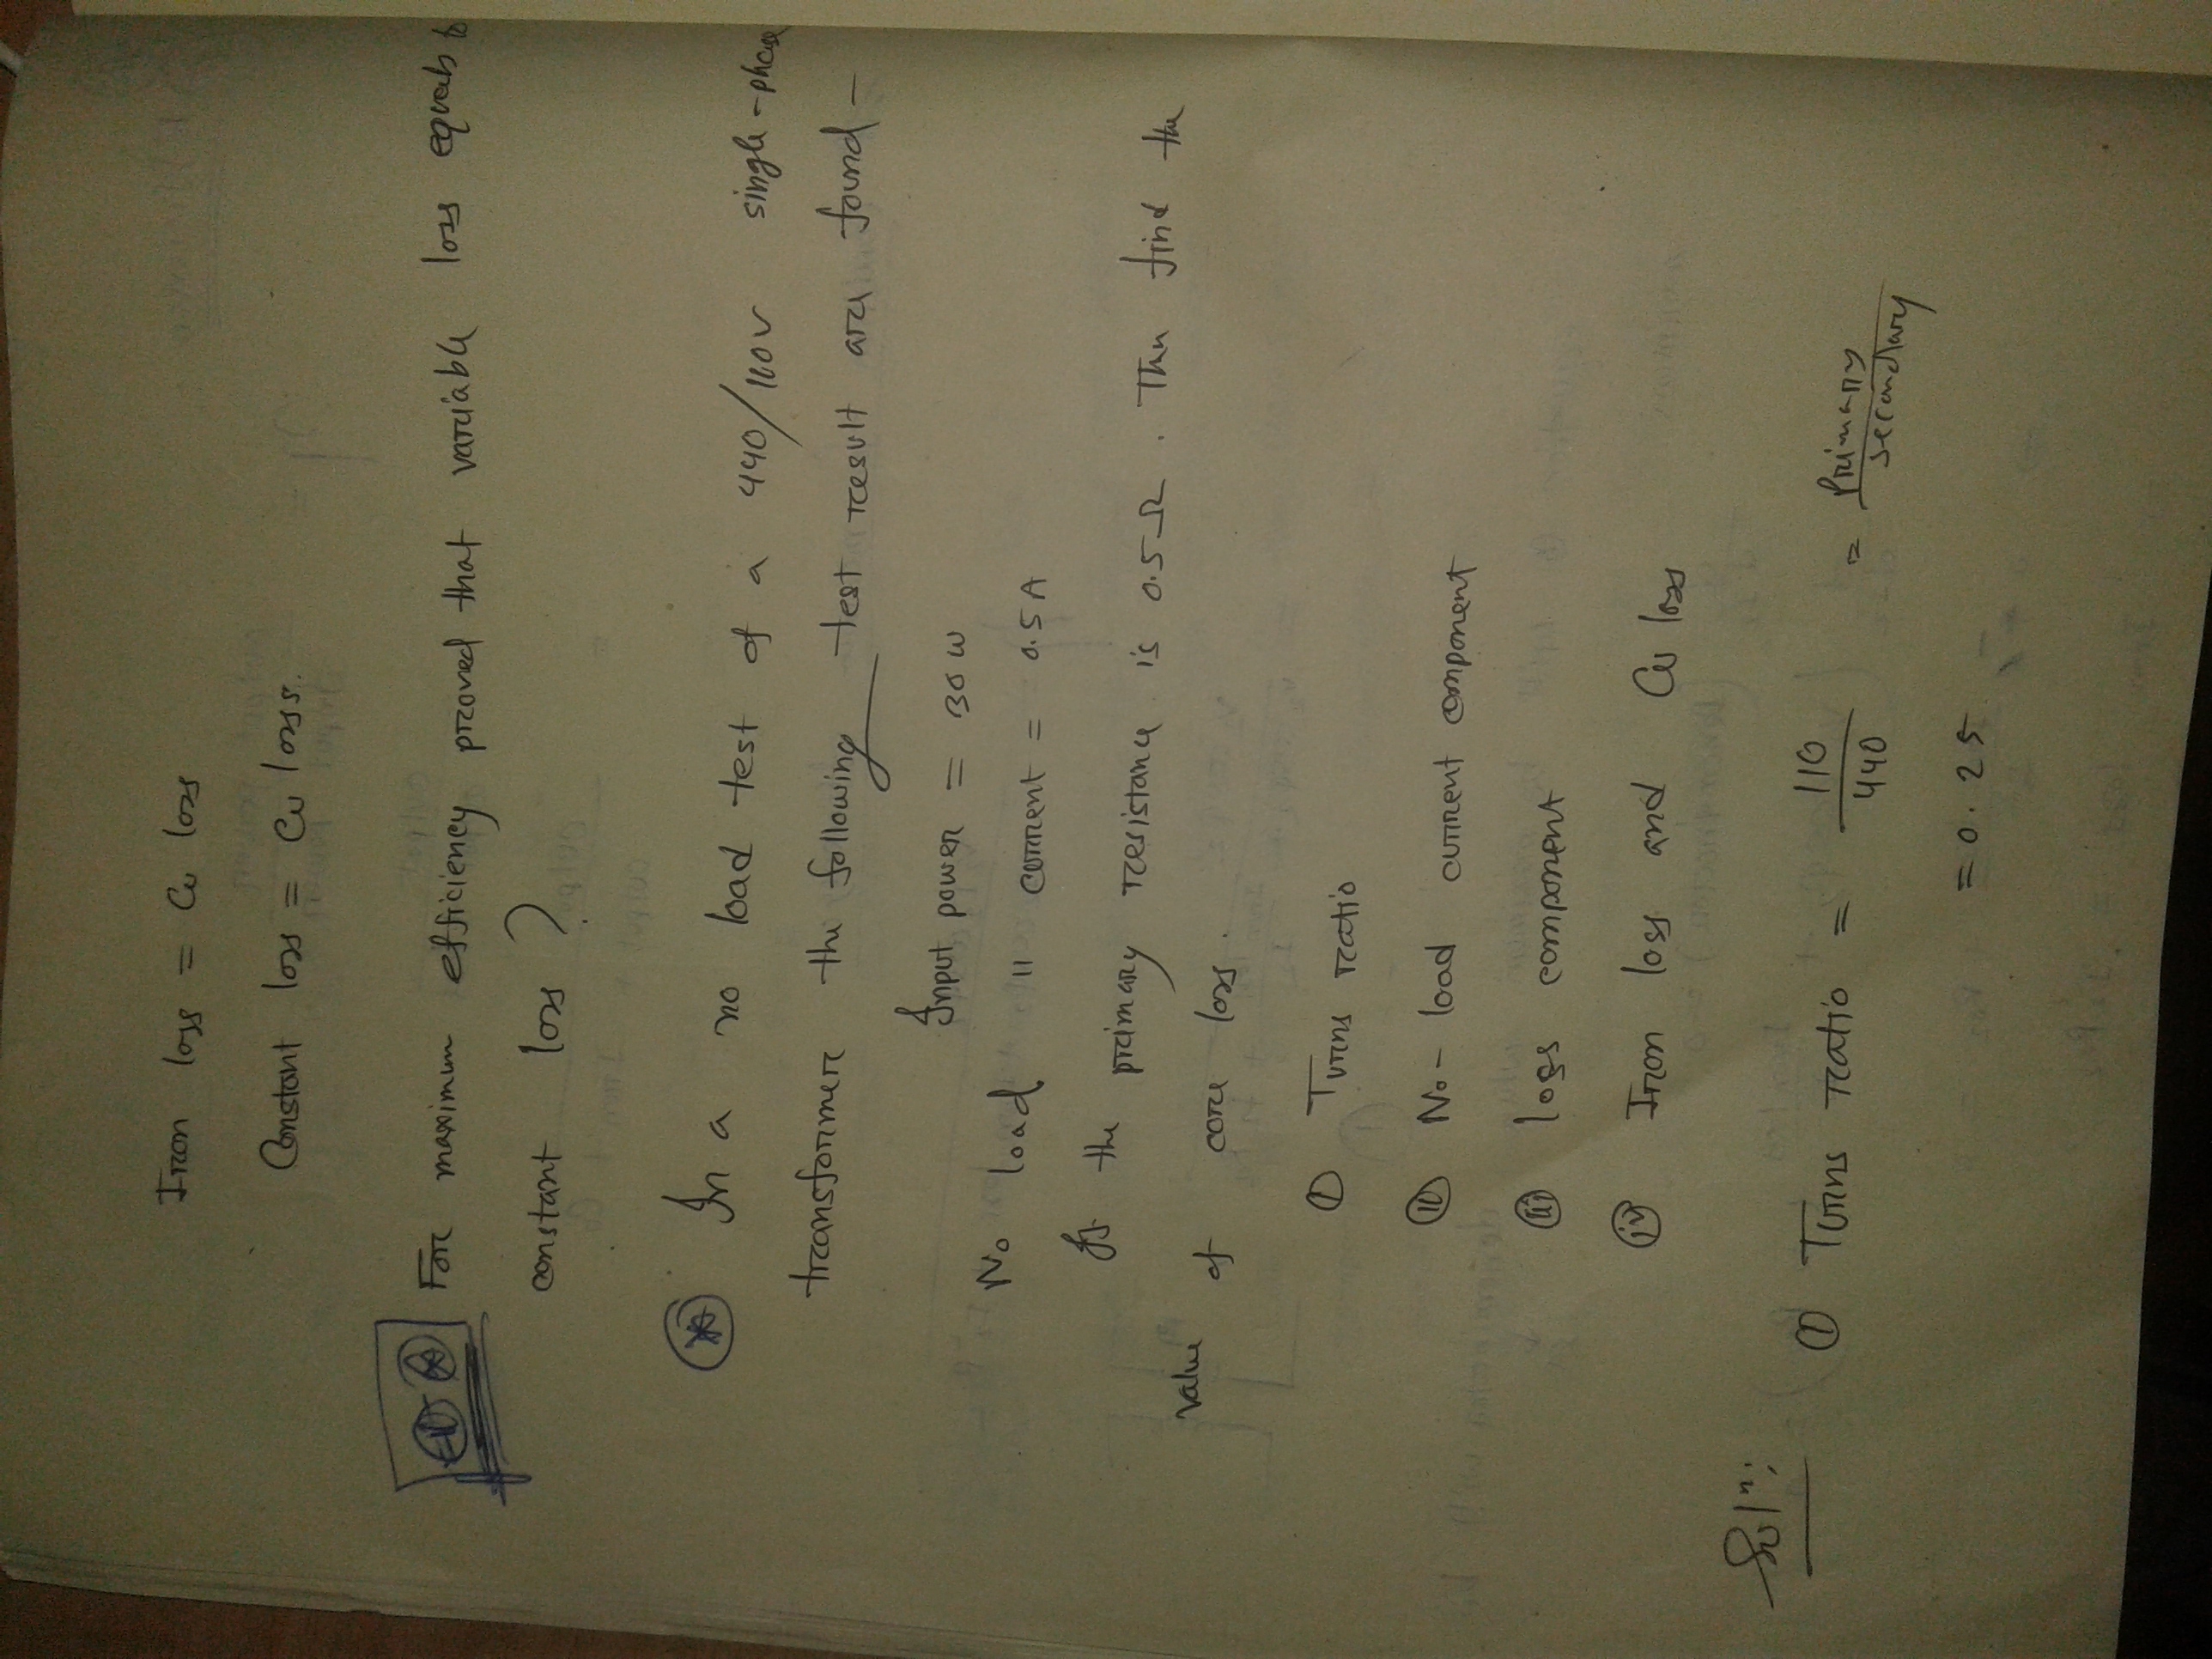 Iron loss = Cu loss
Constant loss = Cu losss.
For maximum efficiency proved that variable loss equals to
constant loss ?
In a no load test of a 440/110v single-phase
transformer the following test result are found -
Input power = 30 W
No load " current = 0.5 A
If the primary resistance is 0.5 Ω. Then find the
value of core loss.
(i) Turns ratio
(ii) No-load current component
(iii) loss component
(iv) Iron loss and Cu loss
Solⁿ:
(i) Turns ratio = 110/440 = Primary/secondary
= 0.25